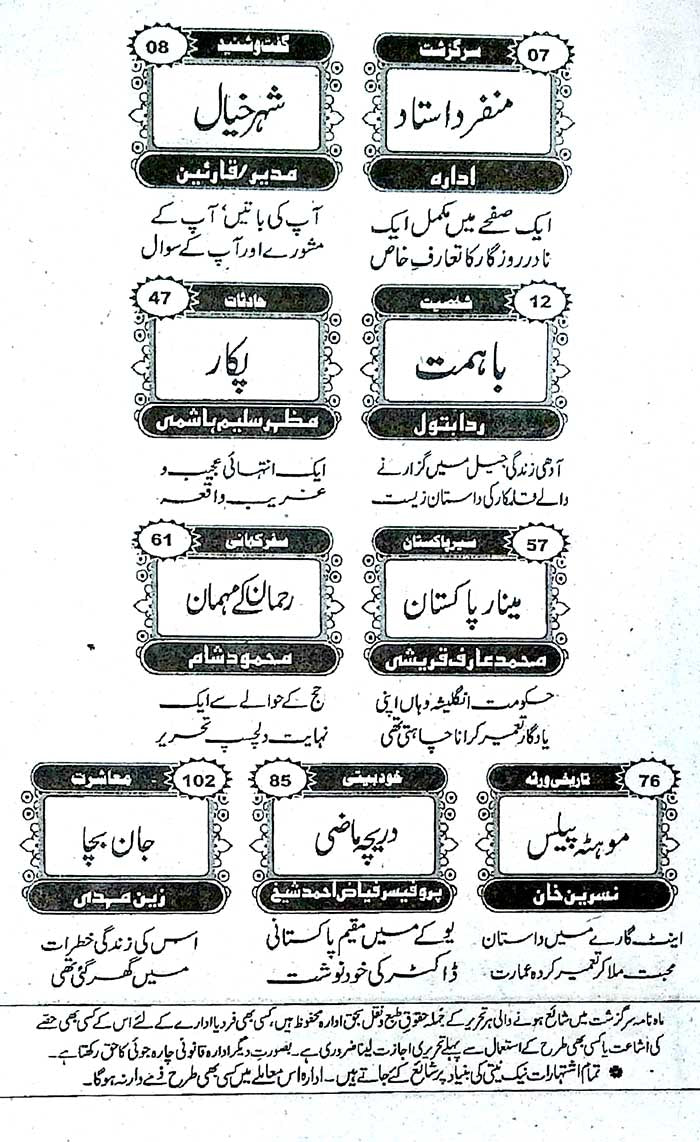 سرگزشت
07
منفرد استاد
ادارہ
ایک صفحے میں مکمل ایک
نادر روزگار کا تعارفِ خاص
گفت و شنید
08
شہر خیال
مدیر/قارئین
آپ کی باتیں، آپ کے
مشورے اور آپ کے سوال
شخصیت
12
باہمت
ردابتول
آدھی زندگی جیل میں گزارنے
والے قلمکار کی داستان زیست
حادثات
47
پکار
مظہر سلیم ہاشمی
ایک انتہائی عجیب و
غریب واقعہ
سیر پاکستان
57
مینار پاکستان
محمد عارف قریشی
حکومت انگلیشہ وہاں اپنی
یادگار تعمیر کرانا چاہتی تھی
سفر کہانی
61
رحمان کے مہمان
محمود شام
حج کے حوالے سے ایک
نہایت دلچسپ تحریر
تاریخی ورثہ
76
موہٹہ پیلس
نسرین خان
اینٹ گارے میں داستان
محبت ملا کر تعمیر کردہ عمارت
خود بیتی
85
دریچہ ماضی
پروفیسر فیاض احمد شیخ
یو کے میں مقیم پاکستانی
ڈاکٹر کی خودنوشت
معاشرت
102
جان بچا
زین مہدی
اس کی زندگی خطرات
میں گھر گئی تھی
ماہنامہ سرگزشت میں شائع ہونے والی ہر تحریر کے جملہ حقوق طبع و نقل بحق ادارہ محفوظ ہیں، کسی بھی فرد یا ادارے کے لئے اس کے کسی بھی حصے
کی اشاعت یا کسی بھی طرح کے استعمال سے پہلے تحریری اجازت لینا ضروری ہے۔ بصورت دیگر ادارہ قانونی چارہ جوئی کا حق رکھتا ہے۔
● تمام اشتہارات نیک نیتی کی بنیاد پر شائع کئے جاتے ہیں۔ ادارہ اس معاملے میں کسی بھی طرح ذمے دار نہ ہوگا۔